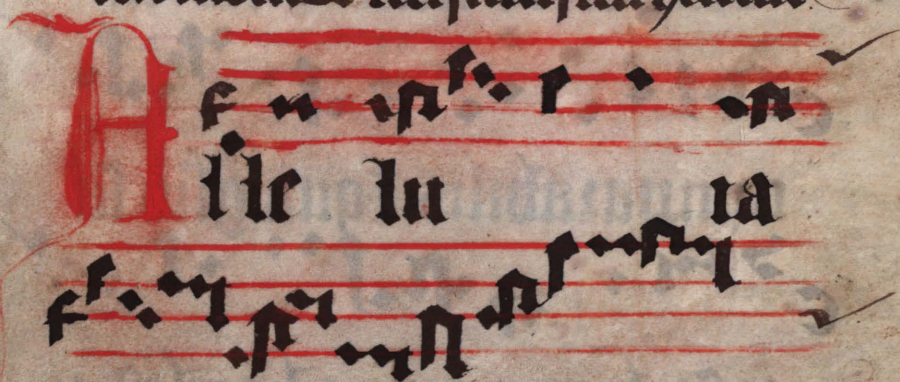 Alle lu ia